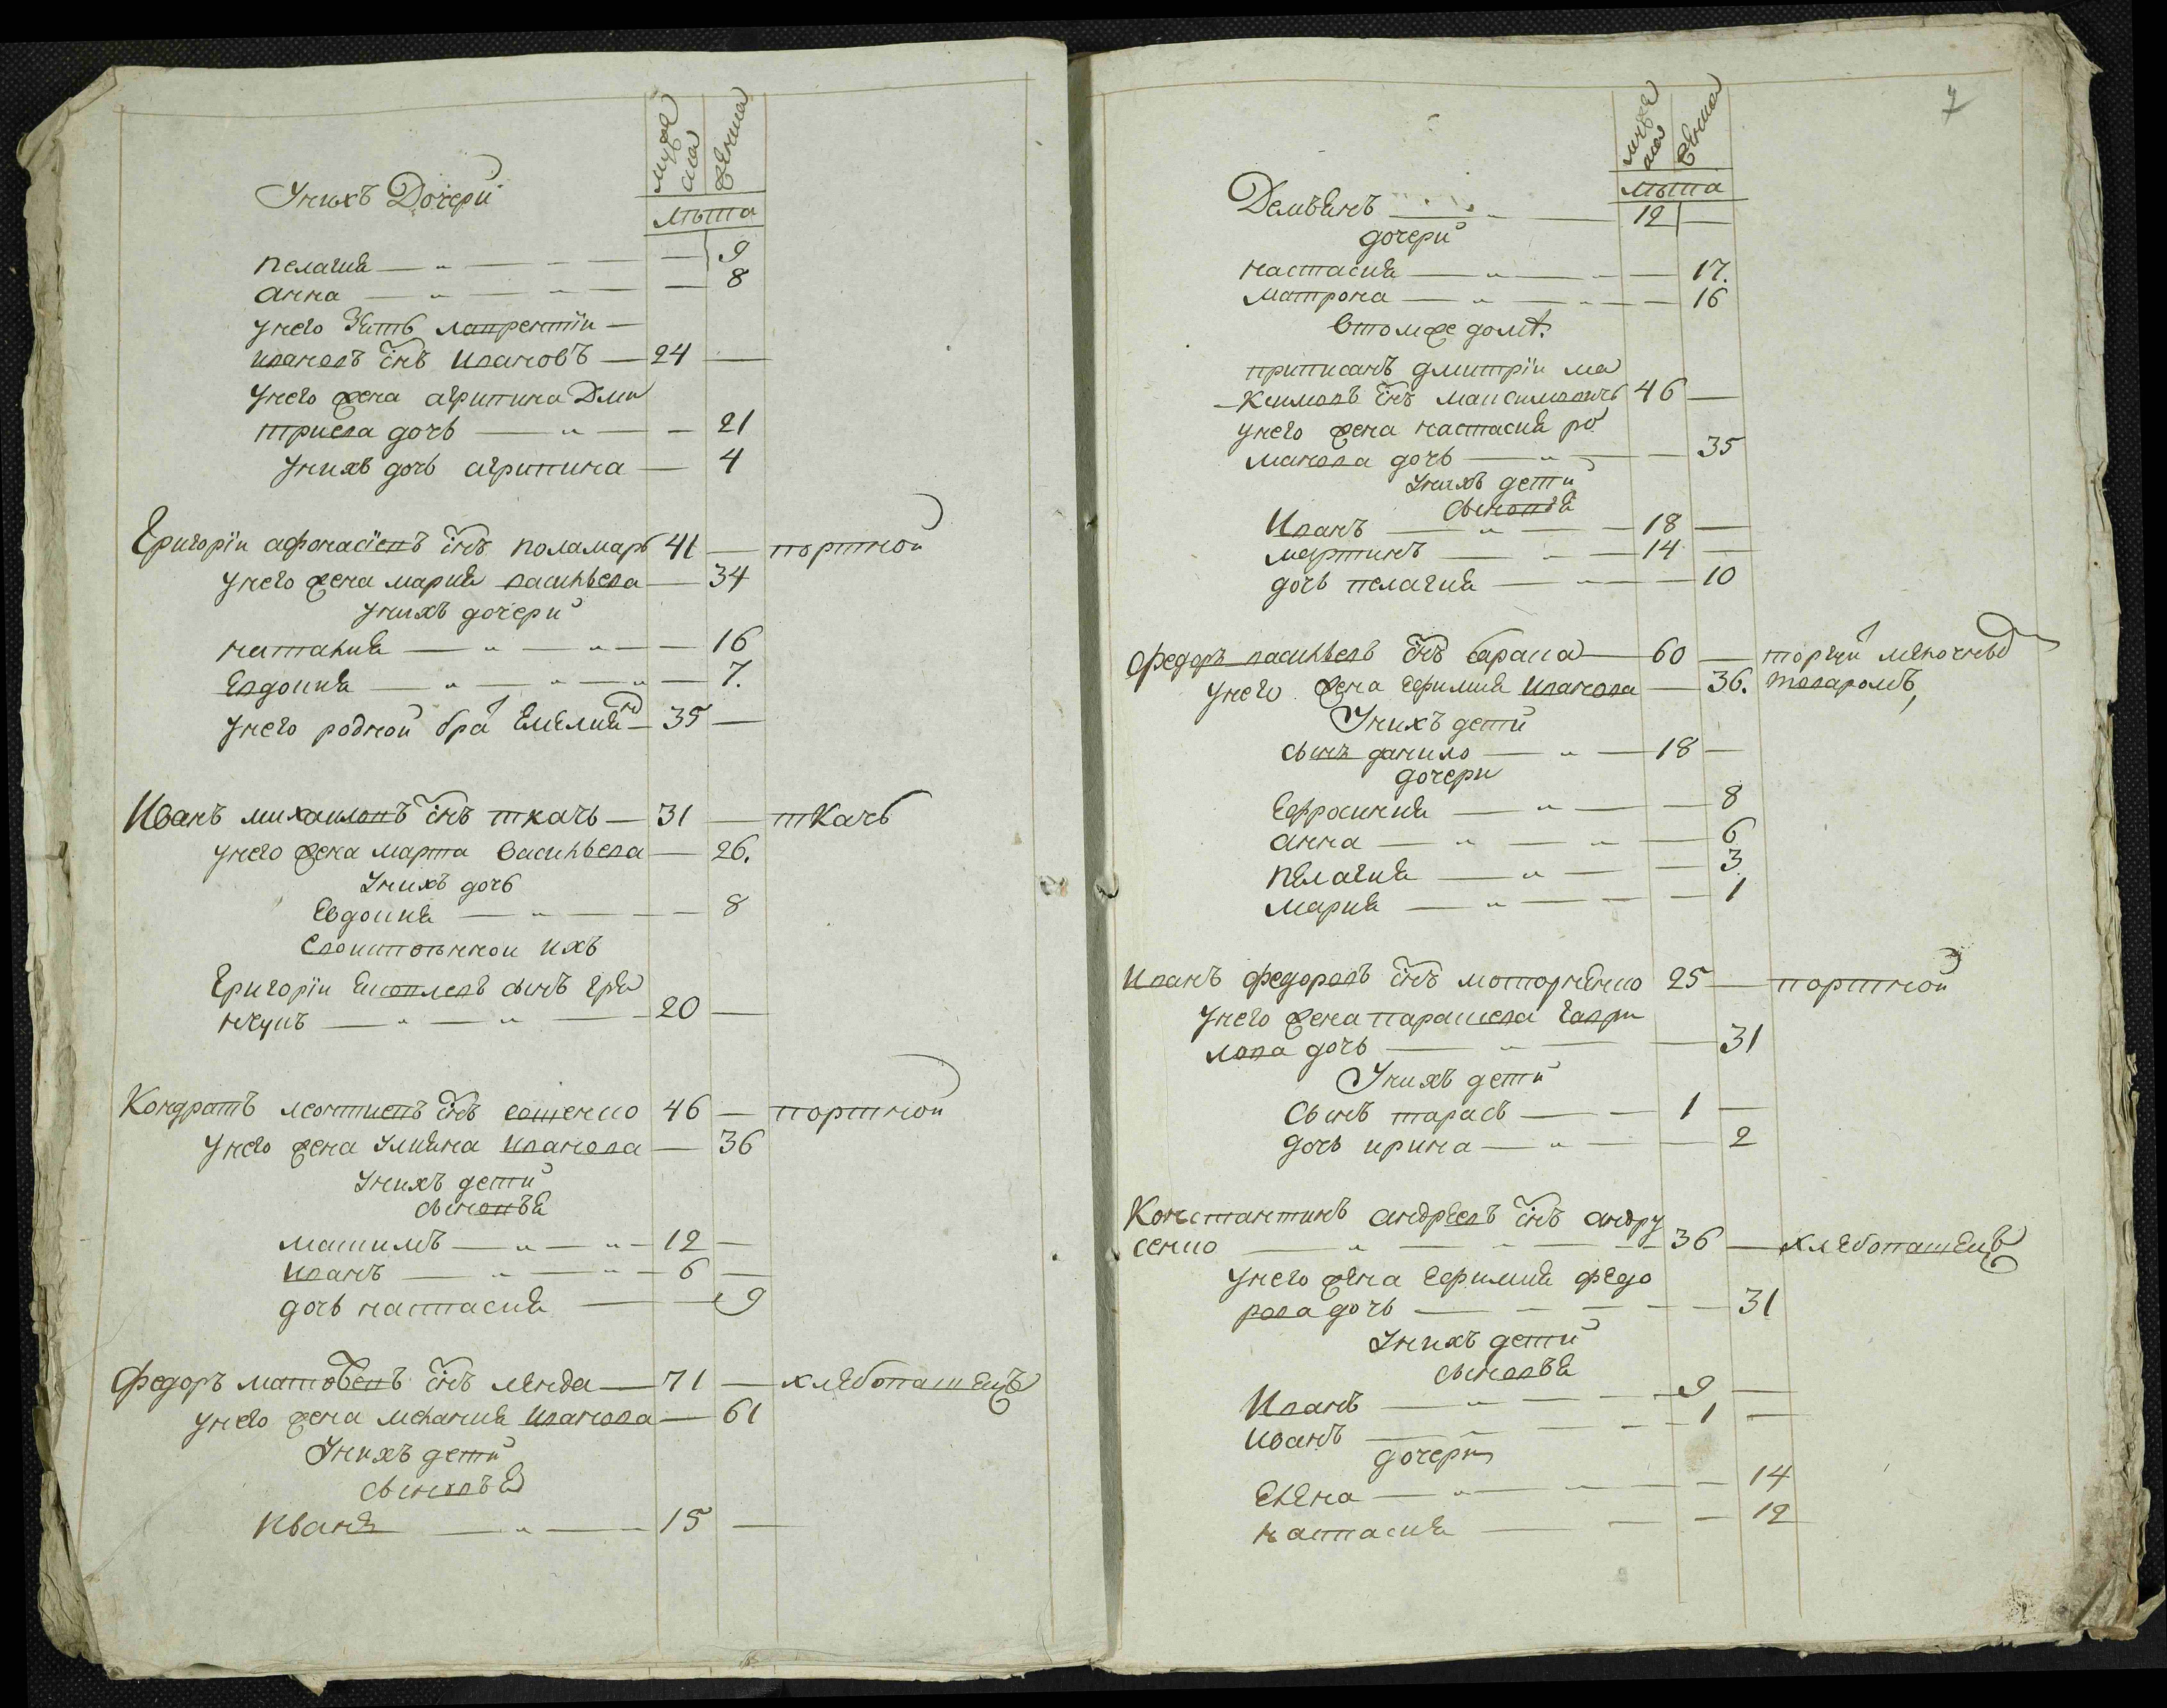 мужеска женска
лѣта
У нихъ Дочери
пелагия — 9
анна — 8
у него Зять лаврентіи
ивановъ снъ ивановъ — 24 —
у него жена агрипина Дми
триева дочь — 21
у нихъ дочь агрипина — 4
Григоріи афонасіевъ снъ поламарь 41 — портной
у него жена мария васильева — 34
у нихъ дочери
наталия — 16
Евдокия — 7.
у него родной бра т Емелиян — 35 —
Иванъ михаиловъ снъ ткачь — 31 — ткачь
у него жена марта васильева — 26.
У нихъ дочь
Евдокия — 8
Григоріи сынъ
20 —
Кондратъ леонтиевъ снъ 46 — портной
у него жена Улияна иванова — 36
У нихъ дети
сыновья
макъсимъ — 12 —
иванъ — 6 —
дочь настасия — 9
Федоръ матвѣевъ снъ ленда — 71 — хлебопашецъ
у него жена мелания иванова — 61
У нихъ дети
сыновья
Иванъ — 15 —
7
мужеска женска
лѣта
Демъянъ — 12 —
дочери
настасия — 17.
матрона — 16
в томже доме
приписанъ дмитріи ма
ксимовъ снъ максимовичь 46 —
у него жена настасия ро
манова дочь — 35
У нихъ дети
сыновья
Иванъ — 18 —
мартинъ — 14 —
дочь пелагия — 10
Федоръ васильевъ снъ барана — 60 — торгуи мелочным
у него жена Ефимия иванова — 36. товаромъ,
У нихъ дети
сынъ данило — 18 —
дочери
Ефросиния — 8
анна — 6
пелагия — 3
мария — 1
Иванъ федоровъ снъ моторненко 25 — портной
у него жена параскева гаври
лова дочь — 31
У нихъ дети
сынъ тарасъ — 1 —
дочь ирина — 2
Константинъ андреевъ снъ андру
сенко — 36 — хлебопашецъ
у него жена Ефимия федо
рова дочь — 31
У нихъ дети
сыновья
Иванъ — 9 —
иванъ — 1 —
дочери
Елена — 14
настасия — 12